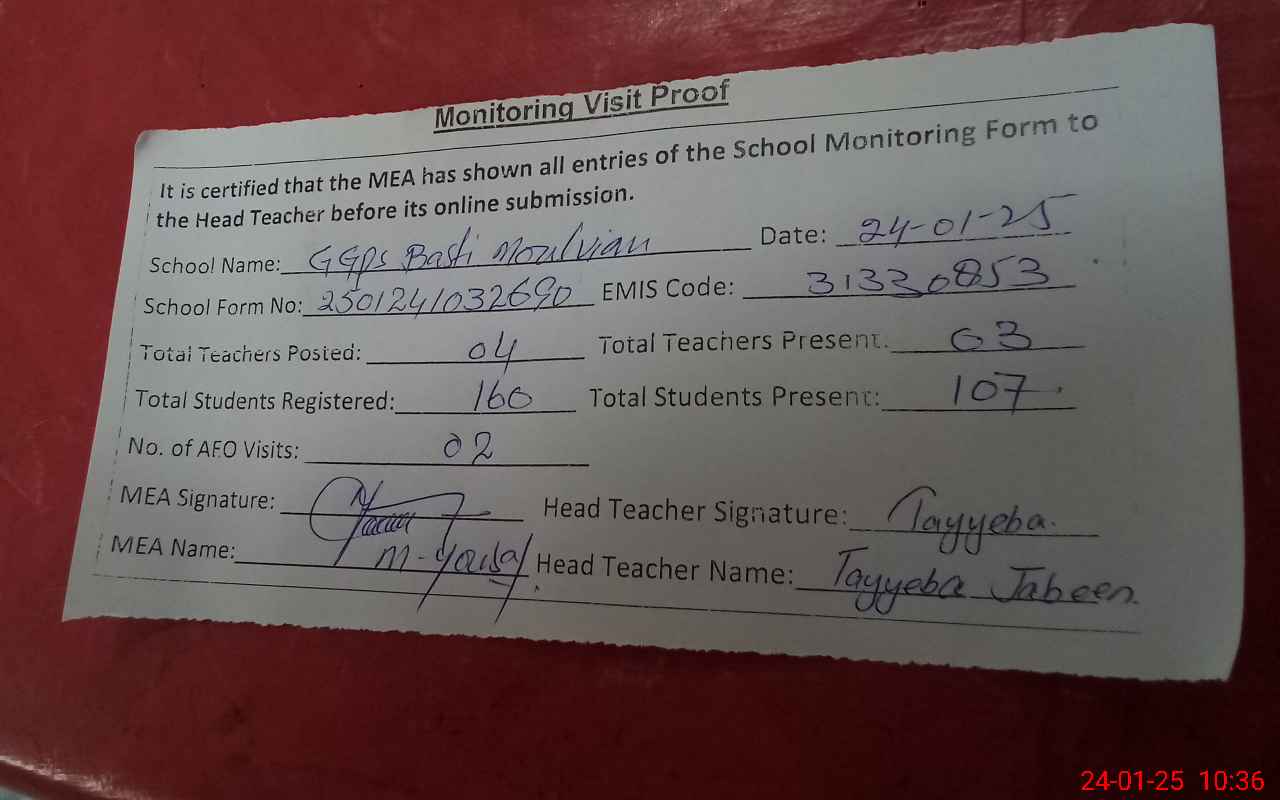 Monitoring Visit Proof
It is certified that the MEA has shown all entries of the School Monitoring Form to
the Head Teacher before its online submission.
School Name: GGPS Basti Moulvian Date: 24-01-25
School Form No: 2501241032690 EMIS Code: 31330853
Total Teachers Posted: 04 Total Teachers Present: 03
Total Students Registered: 160 Total Students Present: 107
No. of AEO Visits: 02
MEA Signature: Head Teacher Signature: Tayyeba.
MEA Name: M-Yousaf Head Teacher Name: Tayyeba Jabeen.
24-01-25 10:36